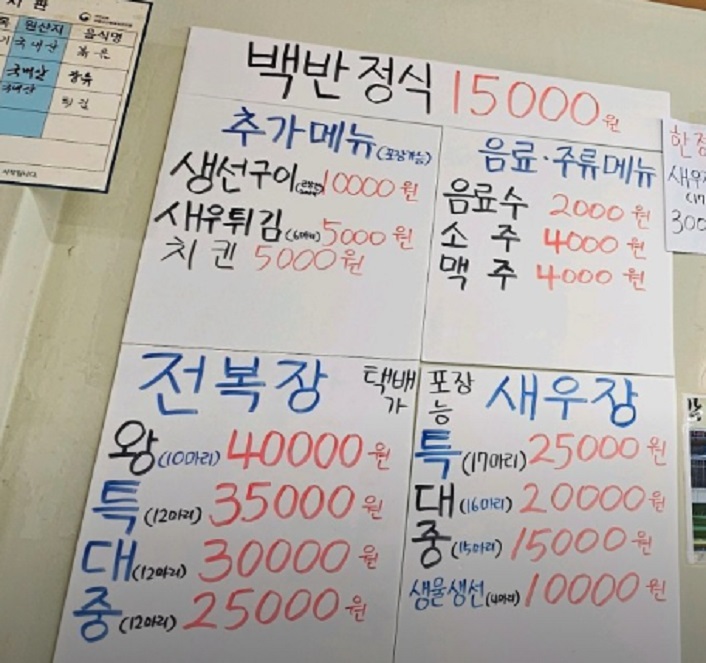 지 판
원산지 음식명
국내산
국내산
국내산 튀김
백반정식 15000원
추가메뉴(포장가능)
생선구이 10000원
새우튀김(6마리) 5000원
치킨 5000원
음료·주류메뉴
음료수 2000원
소 주 4000원
맥 주 4000원
한정
새우
300
전복장 택배
가
왕(10마리) 40000원
특(12마리) 35000원
대(12마리) 30000원
중(12마리) 25000원
포장
능 새우장
특(17마리) 25000원
대(16마리) 20000원
중(15마리) 15000원
생물생선(4마리) 10000원